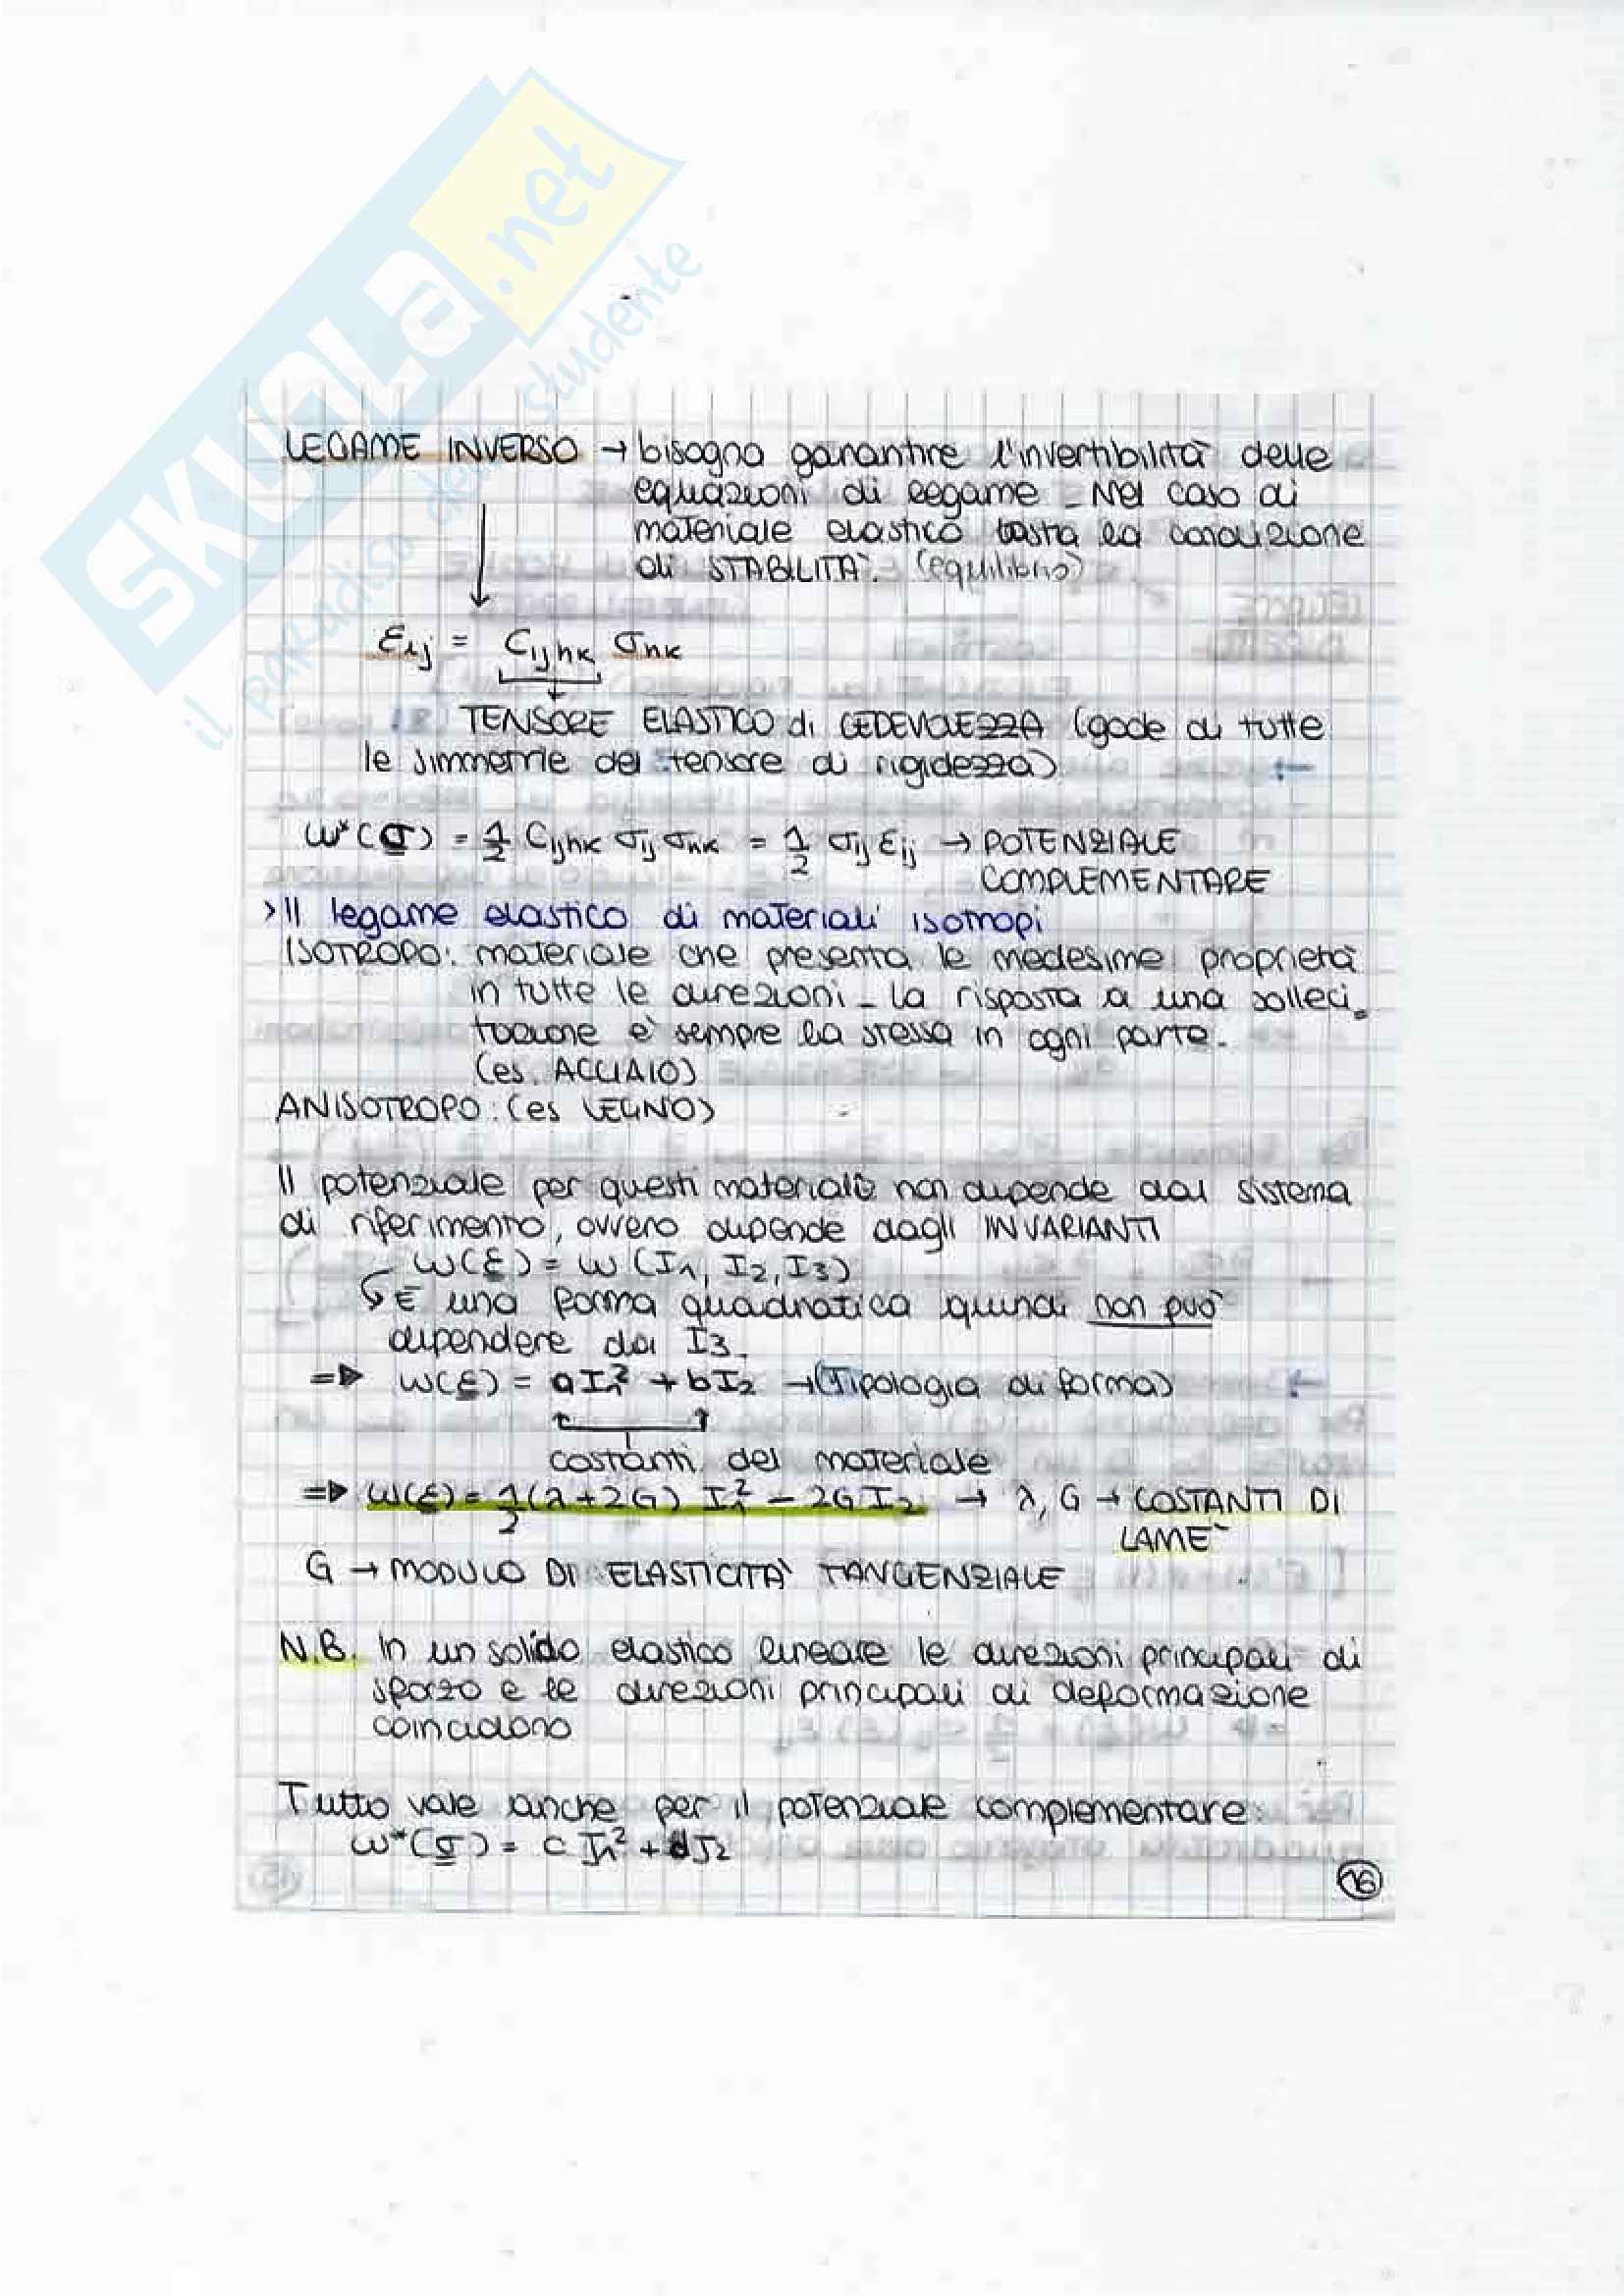 SKUOLA.net
il paradiso dello studente
LEGAME INVERSO → bisogna garantire l'invertibilità delle
equazioni di legame - Nel caso di
materiale elastico basta la condizione
di STABILITÀ. (equilibrio)
εij = Cijhk σhk
TENSORE ELASTICO di CEDEVOLEZZA (gode di tutte
le simmetrie del tensore di rigidezza)
ω*(σ) = 1/2 Cijhk σij σhk = 1/2 σij εij → POTENZIALE
COMPLEMENTARE
> Il legame elastico di materiali isotropi
ISOTROPO: materiale che presenta le medesime proprietà
in tutte le direzioni - La risposta a una solleci-
tazione è sempre la stessa in ogni parte.
(es. ACCIAIO)
ANISOTROPO: (es LEGNO)
Il potenziale per questi materiali non dipende dal sistema
di riferimento, ovvero dipende dagli INVARIANTI
ω(ε) = ω (I1, I2, I3)
È una forma quadratica quindi non può
dipendere da I3.
⇒ ω(ε) = aI1² + bI2 → (Tipologia di forma)
costanti del materiale
⇒ ω(ε) = 1/2 (λ+2G) I1² - 2G I2 → λ, G → COSTANTI DI
LAMÈ
G → MODULO DI ELASTICITÀ TANGENZIALE
N.B. In un solido elastico lineare le direzioni principali di
sforzo e le direzioni principali di deformazione
coincidono
Tutto vale anche per il potenziale complementare:
ω*(σ) = c J1² + dJ2
16